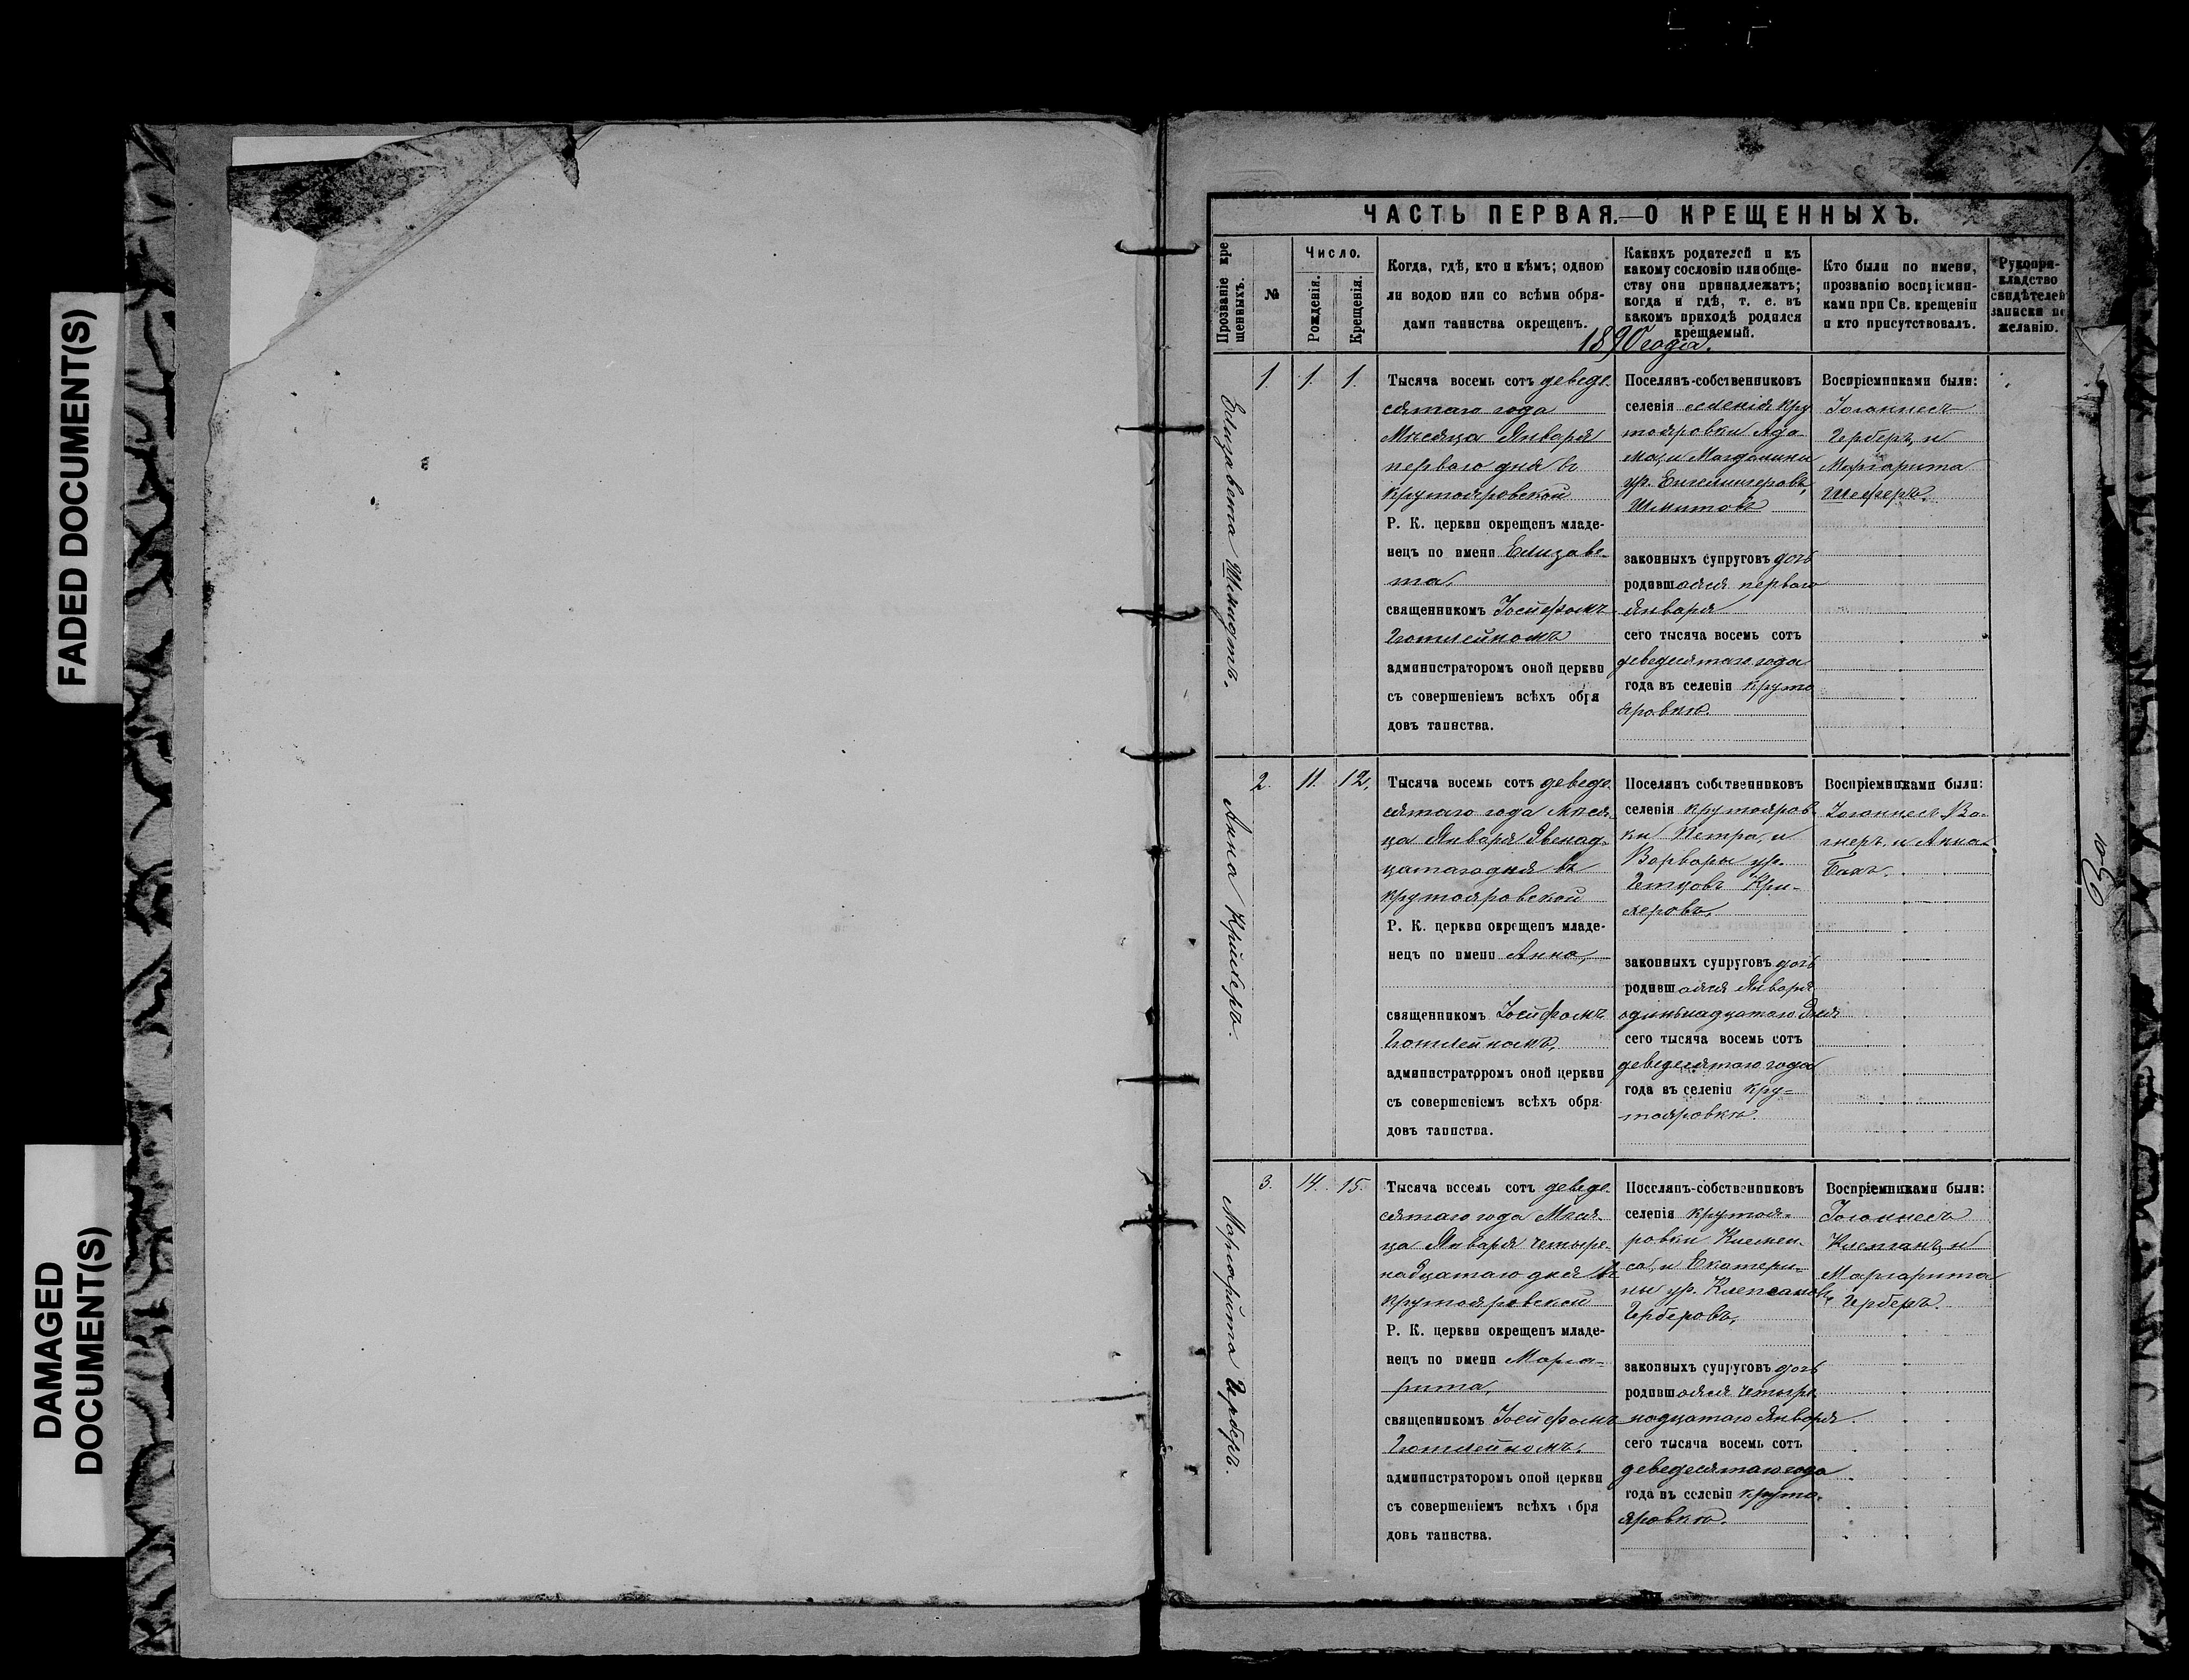 FADED DOCUMENT(S)
DAMAGED
DOCUMENT(S)
ЧАСТЬ ПЕРВАЯ.—О КРЕЩЕННЫХЪ.
Прозваніе кре
щенныхъ.
№
Число.
Рожденія.
Крещенія.
Когда, гдѣ, кто и кѣмъ; одною
ли водою или со всѣми обря-
дами таинства окрещенъ.
Какихъ родителей и къ
какому сословію или обще-
ству они принадлежатъ;
когда и гдѣ, т. е. въ
какомъ приходѣ родился
крещаемый.
Кто были по имени,
прозванію воспріемни-
ками при Св. крещеніи
и кто присутствовалъ.
Рукопри-
кладство
свидѣтелей
записки по
желанію.
1890 года.
Елизавета Шмидтъ.
1.
1.
1.
Тысяча восемь сотъ деведе-
сятаго года
Мѣсяца Января
перваго дня въ
Крутояровской
Р. К. церкви окрещенъ младе-
нецъ по имени Елизаве-
та,
священникомъ Іосифомъ
администраторомъ оной церкви
съ совершеніемъ всѣхъ обря
довъ таинства.
Поселянъ-собственниковъ
селенія селенія Кру
тояровки Ада-
ма, и Магдалины
ур.
Шмитовъ
законныхъ супруговъ дочь
родившаяся перваго
Января
сего тысяча восемь сотъ
деведесятаго года
года въ селеніи Круто
яровкѣ.
Воспріемниками были:
Іоганнесъ
Герберъ, и
Маргарита
Шеферъ.
Анна Крикеръ.
2.
11.
12.
Тысяча восемь сотъ деведе-
сятаго года Мѣся-
ца Января двенад-
цатаго дня въ
Крутояровской
Р. К. церкви окрещенъ младе-
нецъ по имени Анна,
священникомъ Іосифомъ
администраторомъ оной церкви
съ совершеніемъ всѣхъ обря
довъ таинства.
Поселянъ собственниковъ
селенія Крутояров-
ки Петра, и
Варвары ур.
Гетцовъ Кри-
керовъ,
законныхъ супруговъ дочь
родившаяся Января
одинънадцатаго дня
сего тысяча восемь сотъ
деведесятаго года
года въ селеніи Кру-
тояровкѣ.
Воспріемниками были:
Іоганнесъ Ва-
гнеръ, и Анна
Бахъ.
Маргарита Герберъ.
3.
14.
15.
Тысяча восемь сотъ деведе-
сятаго года Мѣся-
ца Января четыре-
надцатаго дня въ
Крутояровской
Р. К. церкви окрещенъ младе-
нецъ по имени Марга-
рита,
священникомъ Іосифомъ
администраторомъ оной церкви
съ совершеніемъ всѣхъ обря
довъ таинства.
Поселянъ-собственниковъ
селенія Крутоя-
ровки Клемен-
са, и Екатери-
ны ур.
Герберовъ,
законныхъ супруговъ дочь
родившаяся четыре-
надцатаго Января
сего тысяча восемь сотъ
деведесятаго года
года въ селеніи Круто-
яровкѣ.
Воспріемниками были:
Іоганнесъ
и
Маргарита
Герберъ.